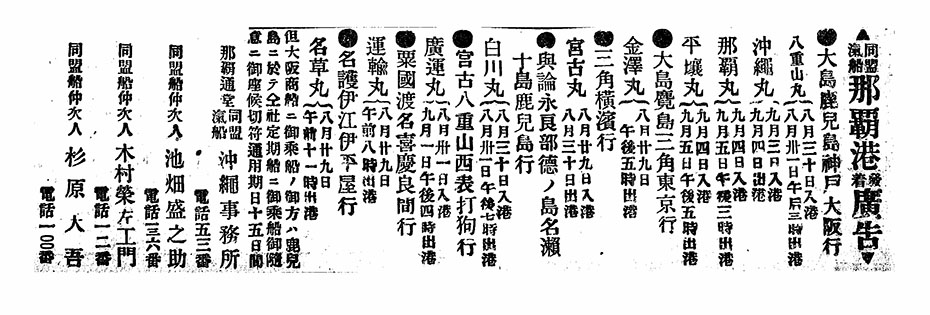 ▲同盟滊船那覇港發着廣告▼
●大島鹿兒島神戸大阪行
八重山丸 八月三十日入港
八月卅一日午后三時出港
沖繩丸 九月三日入港
九月四日出港
那覇丸 九月四日入港
九月五日午後三時出港
平壤丸 九月四日入港
九月五日午後五時出港
●大島鹿兒島三角東京行
金澤丸 八月廿九日
午後五時出港
●三角橫濱行
宮古丸 八月廿九日入港
八月三十日出港
●與論永良部德ノ島名瀨
十島鹿兒島行
白川丸 八月三十日入港
八月卅一日午後七時出港
●宮古八重山西表打狗行
廣運丸 八月卅一日入港
九月一日午後四時出港
●粟國渡名喜慶良間行
運輸丸 八月廿九日
午前八時出港
●名護伊江伊平屋行
名草丸 八月廿九日
午前十一時出港
但大阪商船ニ御乘船ノ御方ハ鹿兒
島ニ於テ仝社定期船ニ御乘船御隨
意ニ御座候切符通用期日十五日間
那覇通堂 同盟滊船 沖繩事務所
電話五三番
同盟船仲次人 池畑盛之助
電話一三六番
同盟船仲次人 木村榮左工門
電話一二番
同盟船仲次人 杉原大吾
電話一〇〇番